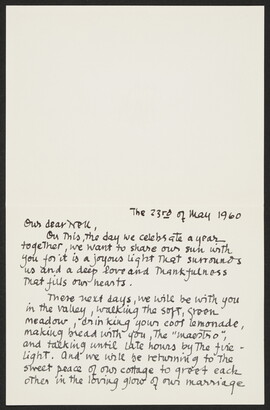 The 23rd of May 1960
Our dear Nell,
On this, the day we celebrate a year
together, we want to share our sun with
you for it is a joyous light that surrounds
us and a deep love and thankfulness
that fills our hearts.
These next days, we will be with you
in the valley, walking the soft, green
meadow, drinking your cool lemonade,
making bread with you, the "maestro",
and talking until late hours by the fire-
light. And we will be returning to the
sweet peace of our cottage to greet each
other in the loving glow of our marriage